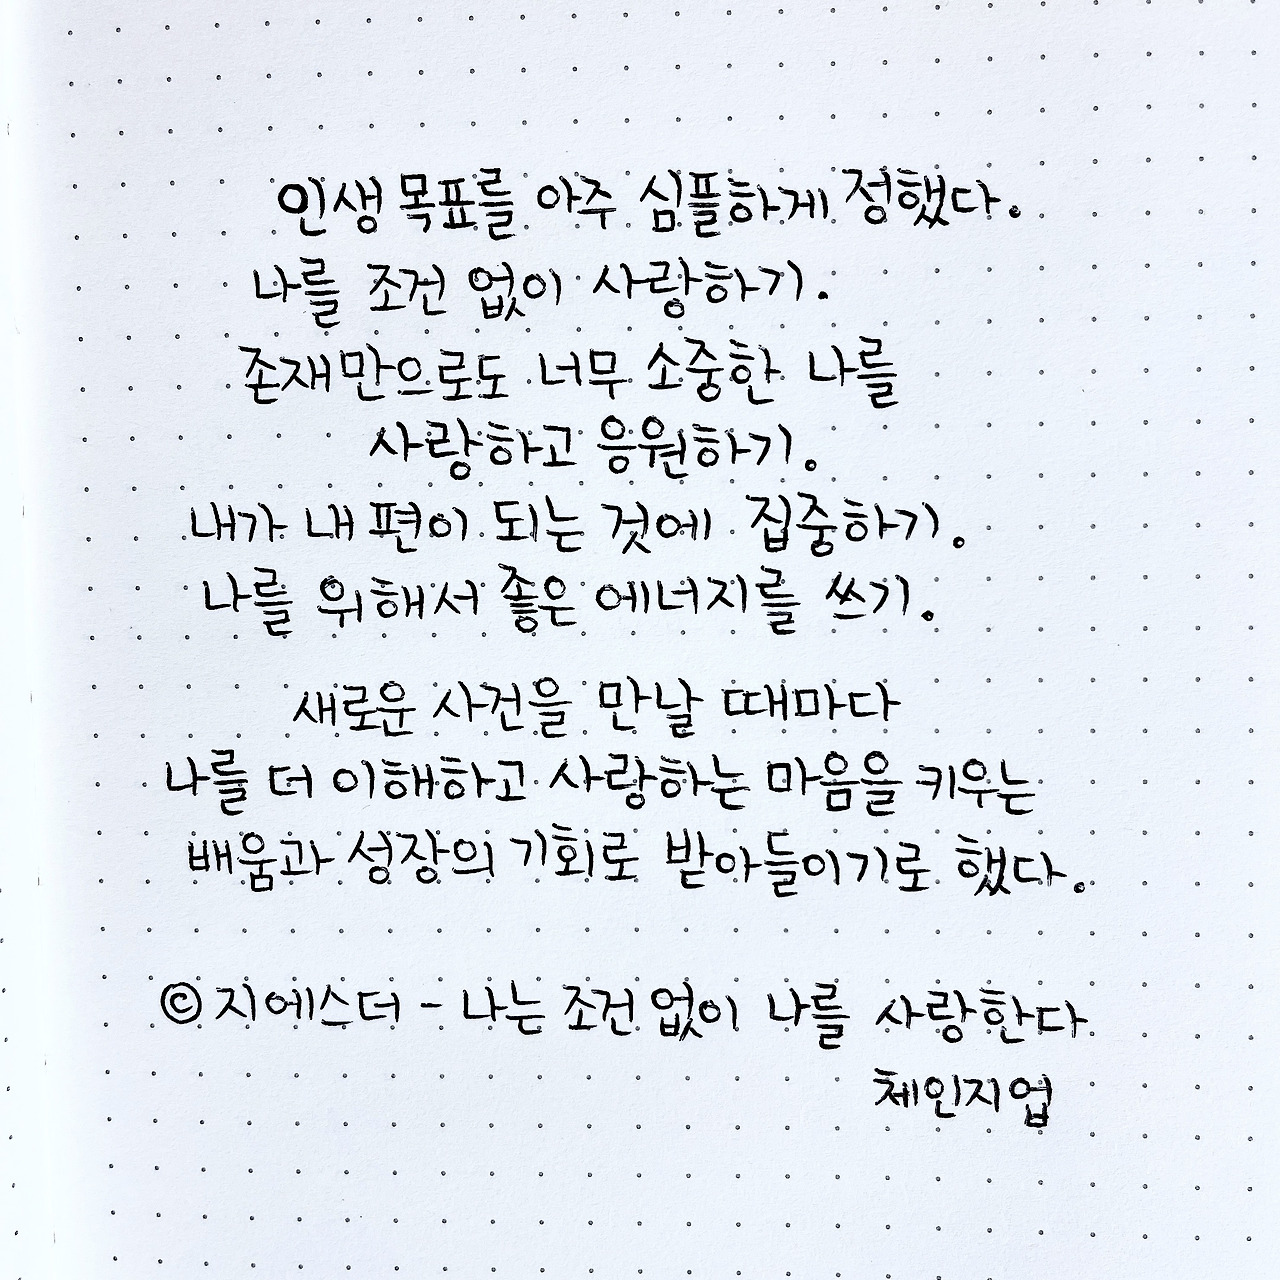 인생 목표를 아주 심플하게 정했다.
나를 조건 없이 사랑하기.
존재만으로도 너무 소중한 나를
사랑하고 응원하기.
내가 내 편이 되는 것에 집중하기.
나를 위해서 좋은 에너지를 쓰기.
새로운 사건을 만날 때마다
나를 더 이해하고 사랑하는 마음을 키우는
배움과 성장의 기회로 받아들이기로 했다.
© 지에스더 - 나는 조건 없이 나를 사랑한다
체인지업